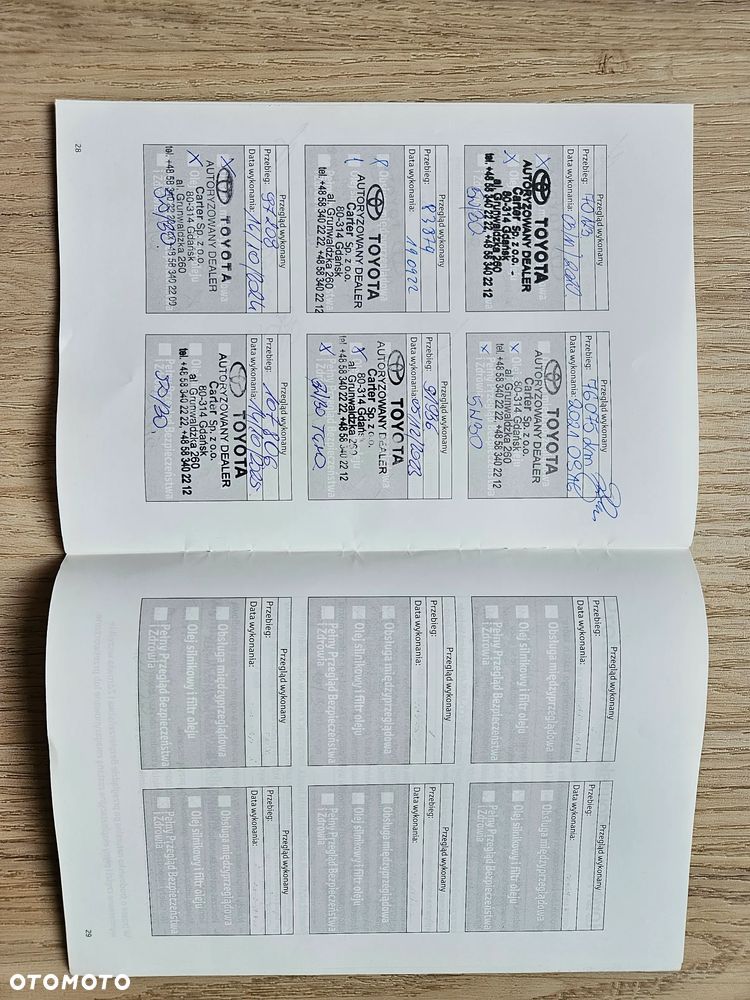 Przegląd wykonany
Przebieg:
Data wykonania:
TOYOTA
AUTORYZOWANY DEALER
Carter Sp. z o.o.
80-314 Gdańsk
al. Grunwaldzka 260
tel. +48 58 340 22 22, +48 58 340 22 12
5W30
76075 km
2021 08 16
TOYOTA
AUTORYZOWANY DEALER
Carter Sp. z o.o.
80-314 Gdańsk
al. Grunwaldzka 260
tel. +48 58 340 22 22, +48 58 340 22 12
5W30
Przegląd wykonany
Przebieg: 83879
Data wykonania: 19 09 22
TOYOTA
AUTORYZOWANY DEALER
Carter Sp. z o.o.
80-314 Gdańsk
al. Grunwaldzka 260
tel. +48 58 340 22 22, +48 58 340 22 12
Przegląd wykonany
Przebieg: 91096
Data wykonania: 05/10/2023
TOYOTA
AUTORYZOWANY DEALER
Carter Sp. z o.o.
80-314 Gdańsk
al. Grunwaldzka 260
tel. +48 58 340 22 22, +48 58 340 22 12
Przegląd wykonany
Przebieg: 97108
Data wykonania: 14/10/2024
TOYOTA
AUTORYZOWANY DEALER
Carter Sp. z o.o.
80-314 Gdańsk
al. Grunwaldzka 260
Przegląd wykonany
Przebieg: 107806
Data wykonania: 14/10/2025
TOYOTA
AUTORYZOWANY DEALER
Carter Sp. z o.o.
80-314 Gdańsk
al. Grunwaldzka 260
tel. +48 58 340 22 22, +48 58 340 22 12
28
Przegląd wykonany
Przebieg:
Data wykonania:
Obsługa międzyprzeglądowa
Olej silnikowy i filtr oleju
Pełny Przegląd Bezpieczeństwa
i Zdrowia
Przegląd wykonany
Przebieg:
Data wykonania:
Obsługa międzyprzeglądowa
Olej silnikowy i filtr oleju
Pełny Przegląd Bezpieczeństwa
i Zdrowia
Przegląd wykonany
Przebieg:
Data wykonania:
Obsługa międzyprzeglądowa
Olej silnikowy i filtr oleju
Pełny Przegląd Bezpieczeństwa
i Zdrowia
Przegląd wykonany
Przebieg:
Data wykonania:
Obsługa międzyprzeglądowa
Olej silnikowy i filtr oleju
Pełny Przegląd Bezpieczeństwa
i Zdrowia
Przegląd wykonany
Przebieg:
Data wykonania:
Obsługa międzyprzeglądowa
Olej silnikowy i filtr oleju
Pełny Przegląd Bezpieczeństwa
i Zdrowia
Przegląd wykonany
Przebieg:
Data wykonania:
Obsługa międzyprzeglądowa
Olej silnikowy i filtr oleju
Pełny Przegląd Bezpieczeństwa
i Zdrowia
29
OTOMOTO